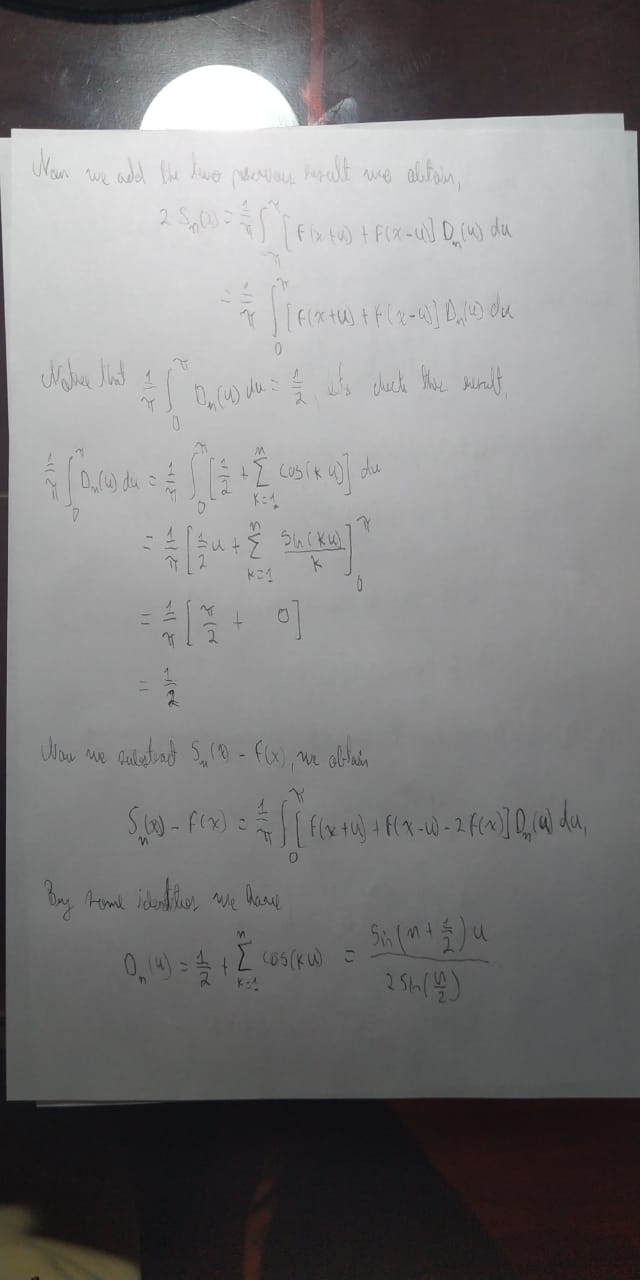 Now we add the two previous result we obtain,
2 Sₙ(x) = 1/π ∫_{-π}^{π} [f(x+u) + f(x-u)] Dₙ(u) du
= 1/π ∫_0^π [f(x+u) + f(x-u)] Dₙ(u) du
Notice that 1/π ∫_0^π Dₙ(u) du = 1/2, let's check this result,
1/π ∫_0^π Dₙ(u) du = 1/π ∫_0^π [1/2 + Σ_{k=1}^n cos(ku)] du
= 1/π [1/2 u + Σ_{k=1}^n sin(ku)/k]_0^π
= 1/π [π/2 + 0]
= 1/2
Now we substract Sₙ(x) - f(x), we obtain
Sₙ(x) - f(x) = 1/π ∫_0^π [f(x+u) + f(x-u) - 2f(x)] Dₙ(u) du,
By some identities we have
Dₙ(u) = 1/2 + Σ_{k=1}^n cos(ku) = sin(n + 1/2)u / 2 sin(u/2)